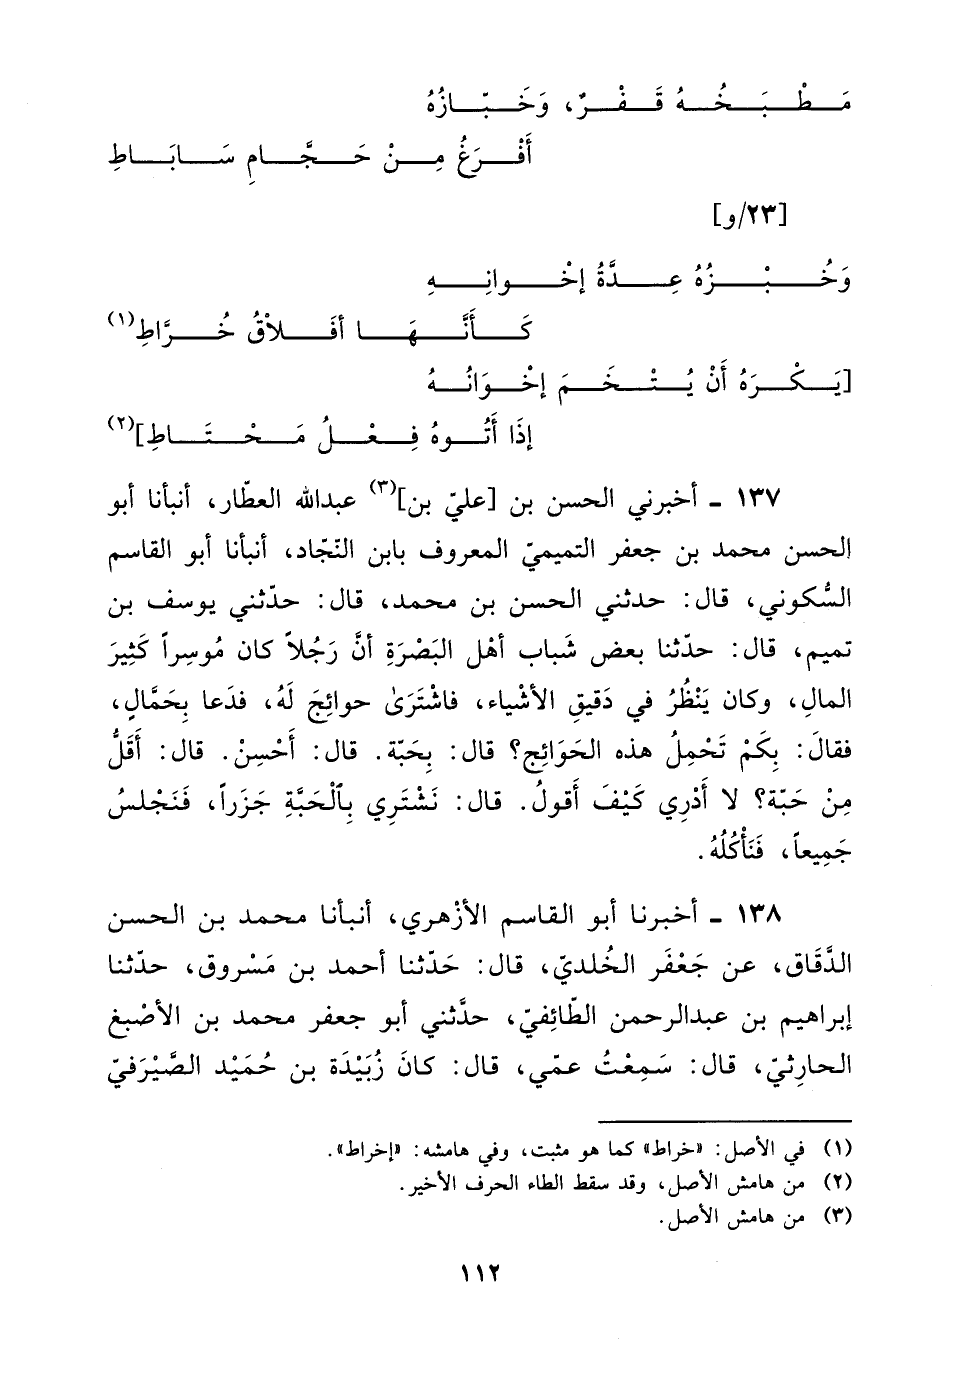 مَطْبَخُهُ قَفْرٌ، وَخَبّازُهُ
أَفْرَغُ مِنْ حَجَّامِ سَابَاطِ
[٢٣/و]
وَخُبْزُهُ عِدَّةُ إخْوانِهِ
كَأَنَّهَا أفَلاْقُ خُرَّاطِ(١)
[يَكْرَهُ أَنْ يُتْخَمَ إخْوَانُهُ
إذَا أَتُوهُ فِعْلُ مَحْتَاطِ](٢)
١٣٧ ـ أخبرني الحسن بن [عليّ بن](٣) عبدالله العطّار، أنبأنا أبو
الحسن محمد بن جعفر التميميّ المعروف بابن النّجّاد، أنبأنا أبو القاسم
السُّكوني، قال: حدثني الحسن بن محمد، قال: حدّثني يوسف بن
تميم، قال: حدّثنا بعض شَباب أهْل البَصْرَةِ أنَّ رَجُلاً كان مُوسِراً كَثِيرَ
المالِ، وكان يَنْظُرُ في دَقيقِ الأشْياء، فاشْتَرَىٰ حوائِجَ لَهُ، فدَعا بِحَمَّالٍ،
فقالَ: بِكَمْ تَحْمِلُ هذه الحَوَائِج؟ قال: بِحَبّة. قال: أَحْسِنْ. قال: أَقَلُّ
مِنْ حَبّة؟ لا أَدْرِي كَيْفَ أَقولُ. قال: نَشْتَرِي بِٱلْحَبَّةِ جَزَراً، فَنَجْلسُ
جَمِيعاً، فَنَأْكُلُهُ.
١٣٨ ـ أخبرنا أبو القاسم الأزْهري، أنبأنا محمد بن الحسن
الدَّقَاق، عن جَعْفَر الخُلديّ، قال: حَدّثنا أحمد بن مَسْروق، حدّثنا
إبراهيم بن عبدالرحمن الطّائِفيّ، حدَّثني أبو جعفر محمد بن الأصْبغ
الحارِثيّ، قال: سَمِعْتُ عمّي، قال: كانَ زُبَيْدَة بن حُمَيْد الصَّيْرَفيّ
(١) في الأصل: «خراط» كما هو مثبت، وفي هامشه: «إخراط».
(٢) من هامش الأصل، وقد سقط الطاء الحرف الأخير.
(٣) من هامش الأصل.
١١٢